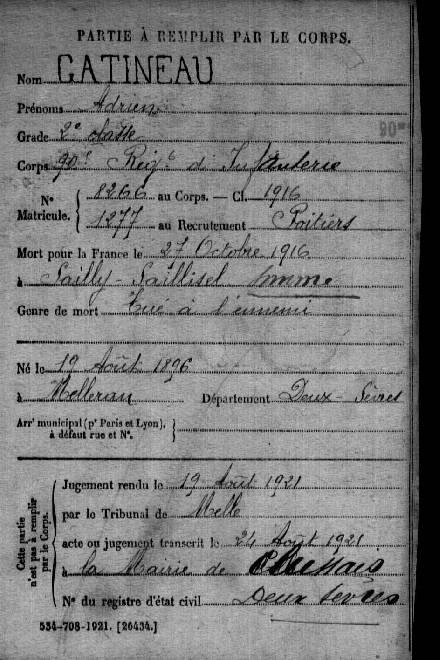 PARTIE À REMPLIR PAR LE CORPS.
Nom GATINEAU
Prénoms Adrien
Grade 2e classe
Corps 90e Regt d'Infanterie
90e
N° Matricule. 8266 au Corps. — Cl. 1916
1277 au Recrutement Poitiers
Mort pour la France le 27 Octobre 1916
à Sailly-Saillisel Somme
Genre de mort Tué à l'ennemi
Né le 19 Août 1896
à Melleran Département Deux-Sèvres
Arrt municipal (pr Paris et Lyon), à défaut rue et N°.
Cette partie n'est pas à remplir par le Corps.
Jugement rendu le 19 Août 1921
par le Tribunal de Melle
acte ou jugement transcrit le 24 Août 1921
à la Mairie de
N° du registre d'état civil Deux Sèvres
534-708-1921. [26434.]